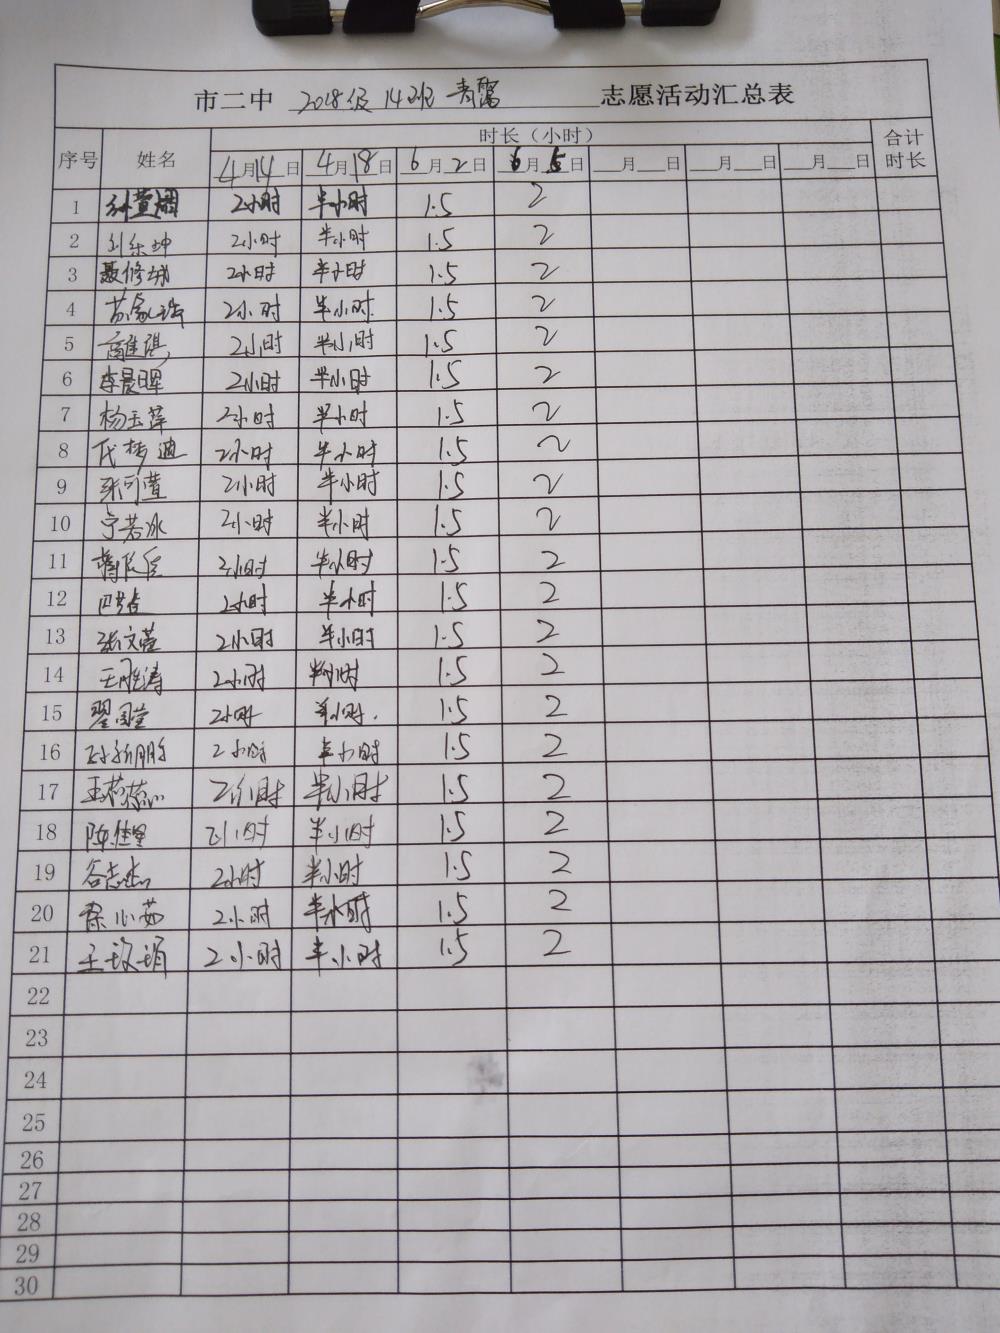 市二中 2018级 14班 青鸾 志愿活动汇总表
序号 姓名 时长（小时） 合计时长
4月14日 4月18日 6月2日 6月5日 __月__日 __月__日 __月__日
1 2小时 半小时 1.5 2
2 刘乐坤 2小时 半小时 1.5 2
3 聂修城 2小时 半小时 1.5 2
4 2小时 半小时 1.5 2
5 2小时 半小时 1.5 2
6 李晨晖 2小时 半小时 1.5 2
7 杨玉萍 2小时 半小时 1.5 2
8 代梦迪 2小时 半小时 1.5 2
9 张可萱 2小时 半小时 1.5 2
10 宁若冰 2小时 半小时 1.5 2
11 2小时 半小时 1.5 2
12 2小时 半小时 1.5 2
13 张文萱 2小时 半小时 1.5 2
14 王雅涛 2小时 半小时 1.5 2
15 2小时 半小时. 1.5 2
16 2小时 半小时 1.5 2
17 王蕊蕊 2小时 半小时 1.5 2
18 陈佳星 2小时 半小时 1.5 2
19 谷志杰 2小时 半小时 1.5 2
20 秦心茹 2小时 半小时 1.5 2
21 王玫娟 2小时 半小时 1.5 2
22
23
24
25
26
27
28
29
30